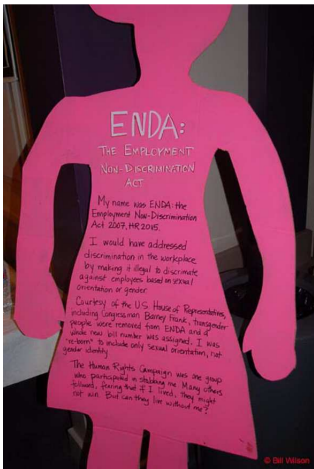 ENDA:
THE EMPLOYMENT
NON-DISCRIMINATION
ACT
My name was ENDA: the
Employment Non-Discrimination
Act 2007, HR 2015.
I would have addressed
discrimination in the workplace
by making it illegal to discrimate
against employees based on sexual
orientation or gender.
Courtesy of the U.S House of Representatives,
including Congressman Barney Frank, transgender
people were removed from ENDA and a
whole new bill number was assigned. I was
"re-born" to include only sexual orientation, not
gender identity.
The Human Rights Campaign was one group
who participated in stabbing me. Many others
followed, fearing that if I lived, they might
not win. But can they live without me?
© Bill Wilson